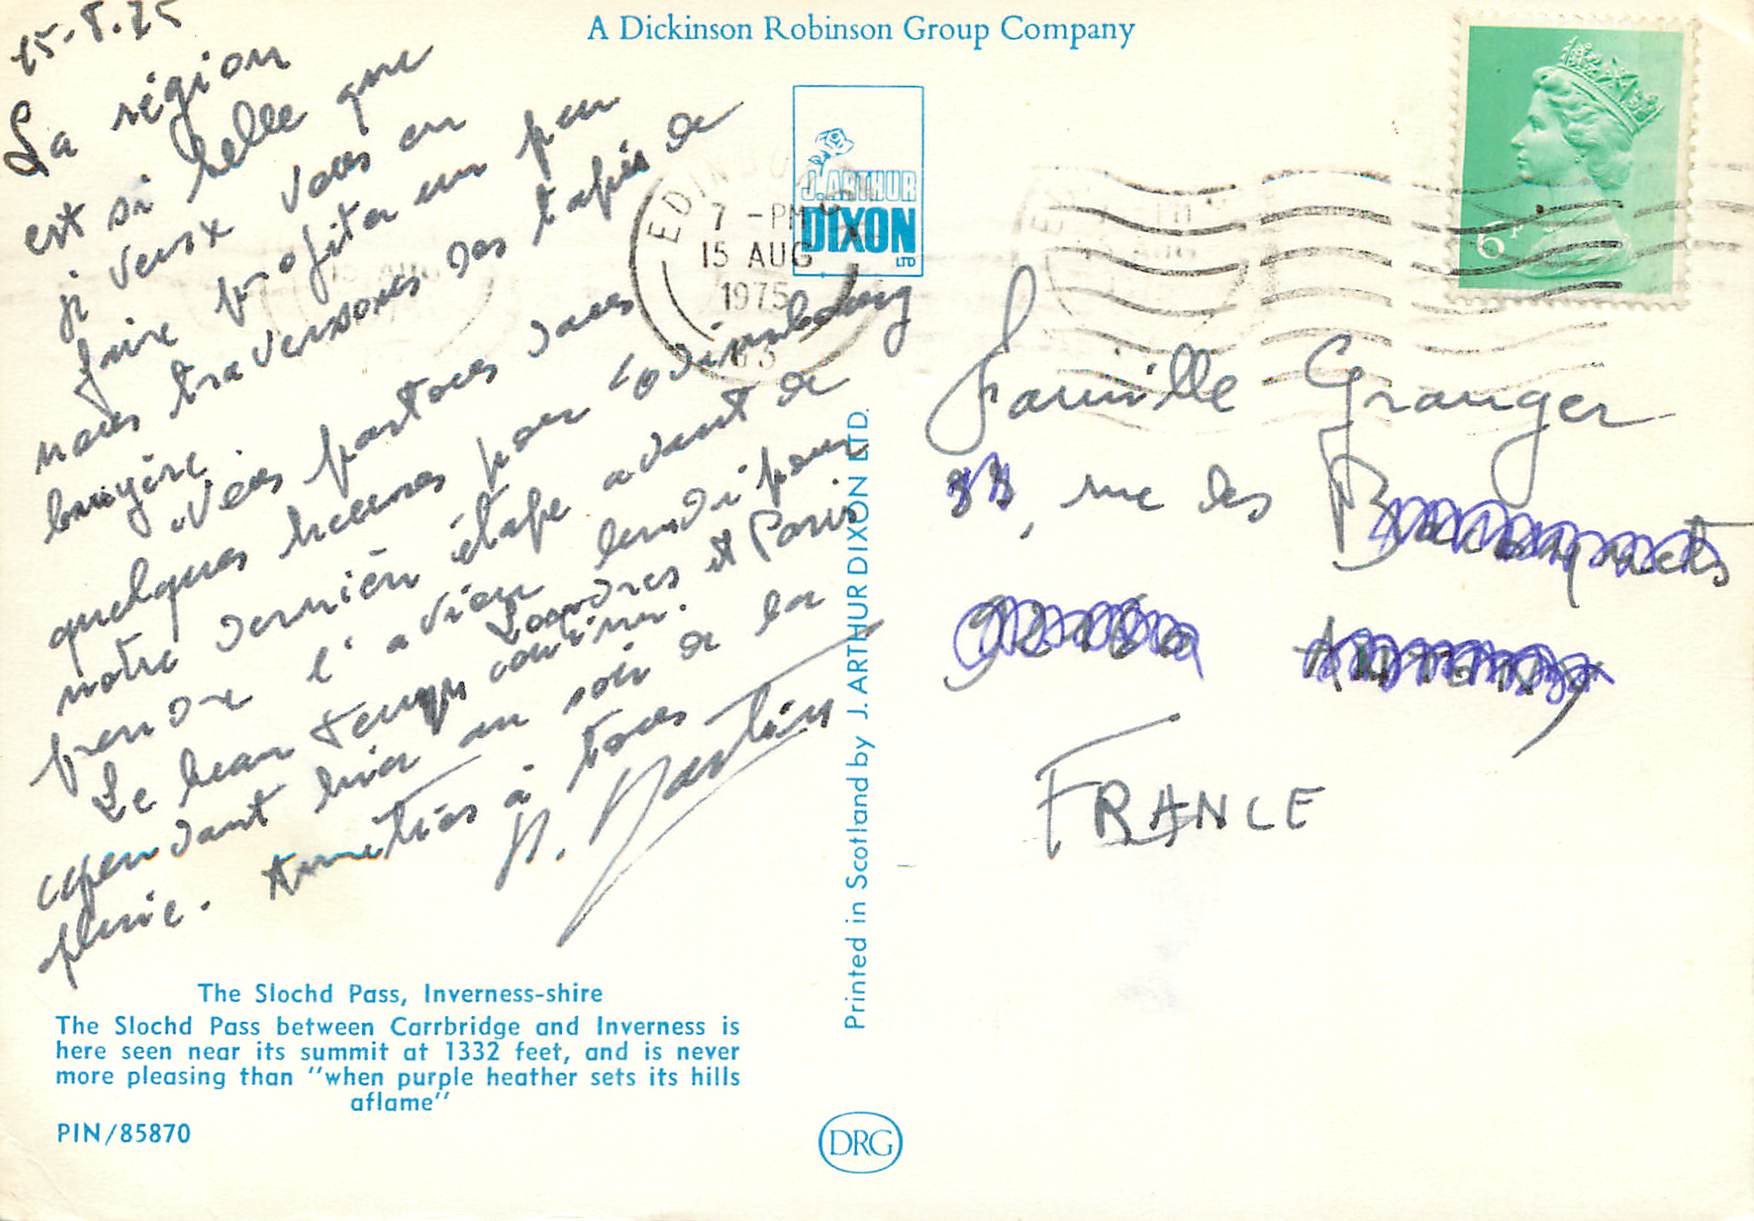 A Dickinson Robinson Group Company
15-8.75
La région
est si belle que
je veux vous en
faire profiter un peu
nous traversons des tapis de
bruyère.
Nous partons dans
quelques heures pour Edimbourg
notre dernière étape avant de
prendre l'avion lundi pour
Londres et Paris
Le beau temps continue.
cependant hier au soir de la
pluie. Amitiés à tous
J. ARTHUR
DIXON
LTD
EDINBURGH
7 - PM
15 AUG
1975
6P
Famille Granger
rue des
FRANCE
Printed in Scotland by J. ARTHUR DIXON LTD.
The Slochd Pass, Inverness-shire
The Slochd Pass between Carrbridge and Inverness is
here seen near its summit at 1332 feet, and is never
more pleasing than "when purple heather sets its hills
aflame"
PIN/85870
DRG